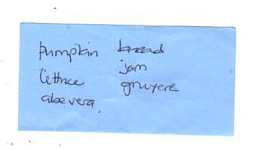 pumpkin bread
jam
lettuce gruyere
aloe vera.